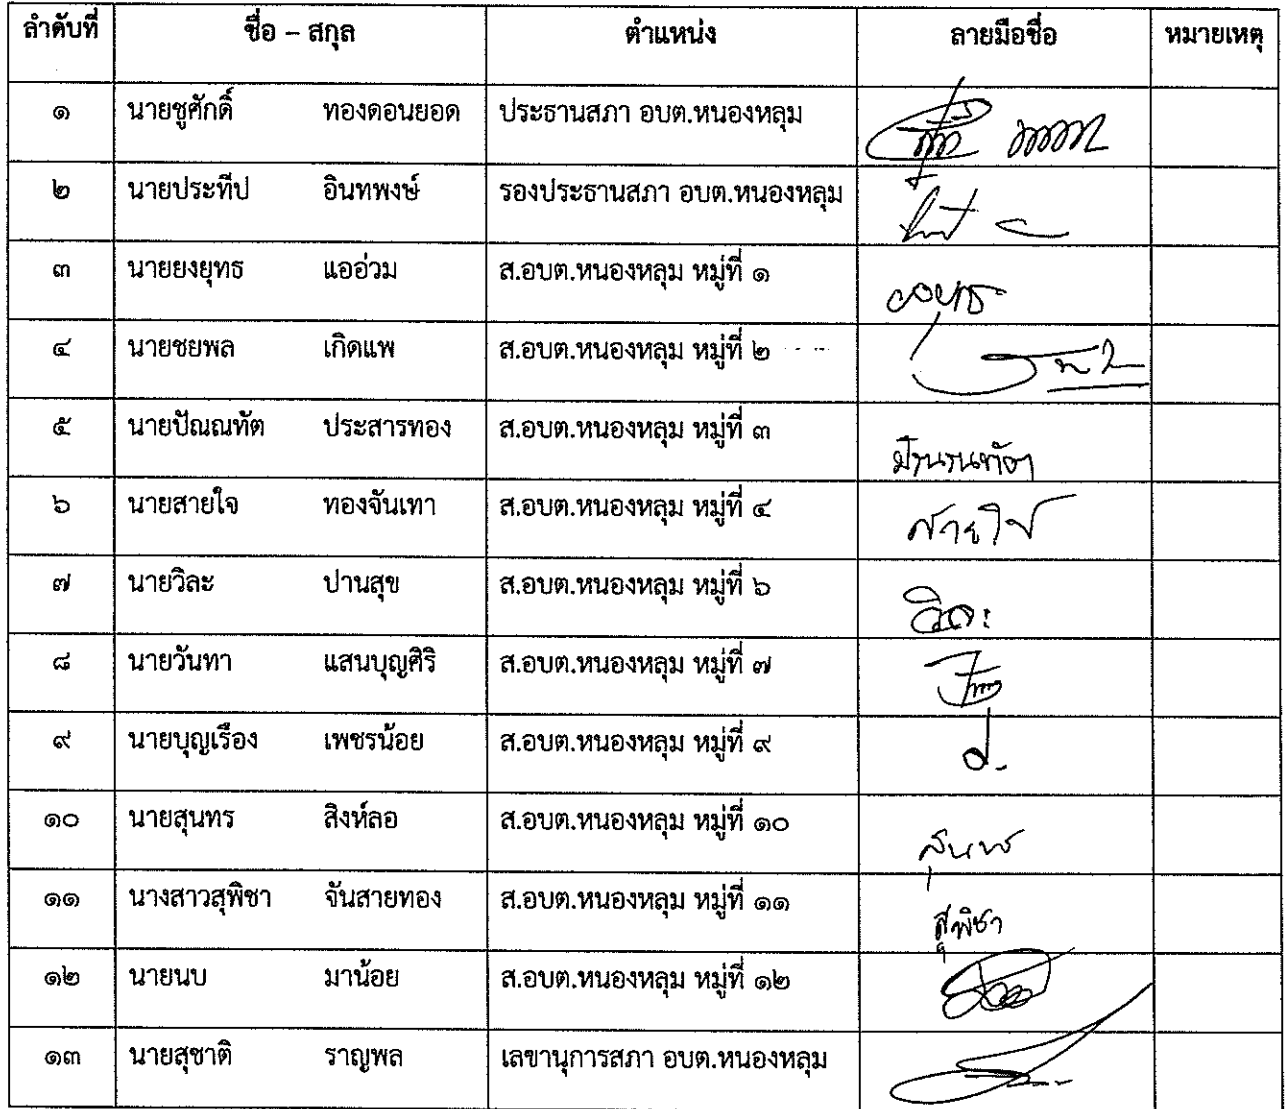 ลำดับที่ ชื่อ – สกุล ตำแหน่ง ลายมือชื่อ หมายเหตุ
๑ นายชูศักดิ์ ทองดอนยอด ประธานสภา อบต.หนองหลุม
๒ นายประทีป อินทพงษ์ รองประธานสภา อบต.หนองหลุม
๓ นายยงยุทธ แออ่วม ส.อบต.หนองหลุม หมู่ที่ ๑
๔ นายชยพล เกิดแพ ส.อบต.หนองหลุม หมู่ที่ ๒
๕ นายปัณณทัต ประสารทอง ส.อบต.หนองหลุม หมู่ที่ ๓
๖ นายสายใจ ทองจันเทา ส.อบต.หนองหลุม หมู่ที่ ๔ สายใจ
๗ นายวิละ ปานสุข ส.อบต.หนองหลุม หมู่ที่ ๖ วิละ
๘ นายวันทา แสนบุญศิริ ส.อบต.หนองหลุม หมู่ที่ ๗
๙ นายบุญเรือง เพชรน้อย ส.อบต.หนองหลุม หมู่ที่ ๙
๑๐ นายสุนทร สิงห์ลอ ส.อบต.หนองหลุม หมู่ที่ ๑๐ สุนทร
๑๑ นางสาวสุพิชา จันสายทอง ส.อบต.หนองหลุม หมู่ที่ ๑๑ สุพิชา
๑๒ นายนบ มาน้อย ส.อบต.หนองหลุม หมู่ที่ ๑๒
๑๓ นายสุชาติ ราญพล เลขานุการสภา อบต.หนองหลุม